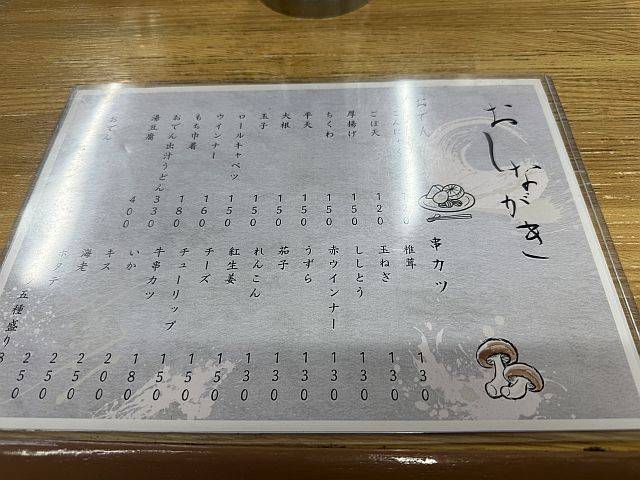 おしながき
おでん
こんにゃく
ごぼ天 120
厚揚げ 150
ちくわ 150
平天 150
大根 150
玉子 150
ロールキャベツ 150
ウインナー 160
もち巾着 180
おでん出汁うどん 330
湯豆腐 400
おでん
串カツ
椎茸 130
玉ねぎ 130
ししとう 130
赤ウインナー 130
うずら 130
茄子 130
れんこん 130
紅生姜 150
チーズ 150
チューリップ 150
牛串カツ 180
いか 200
キス 250
海老 250
ホタテ 250
五種盛り